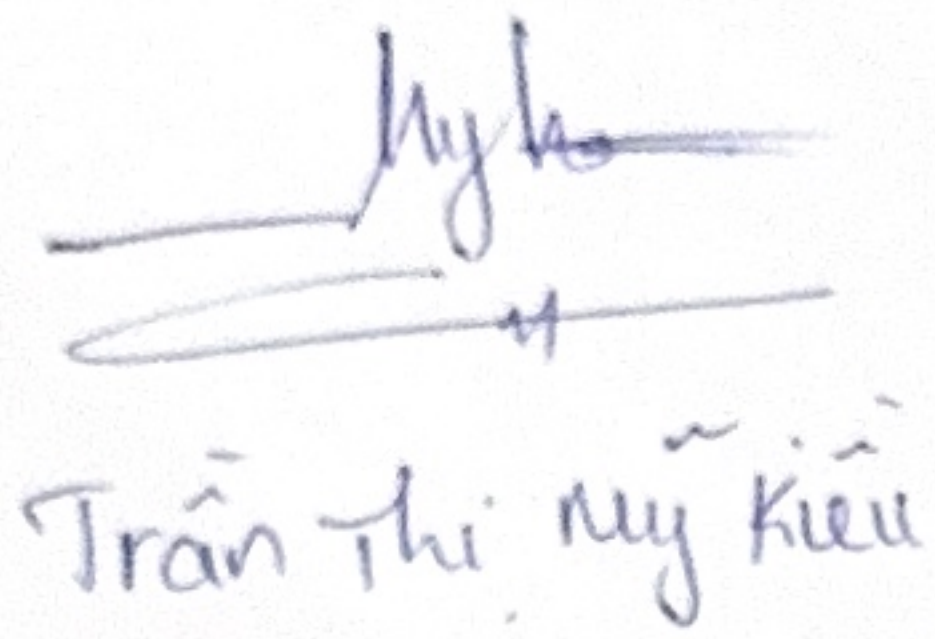 Trần Thị Mỹ Kiều